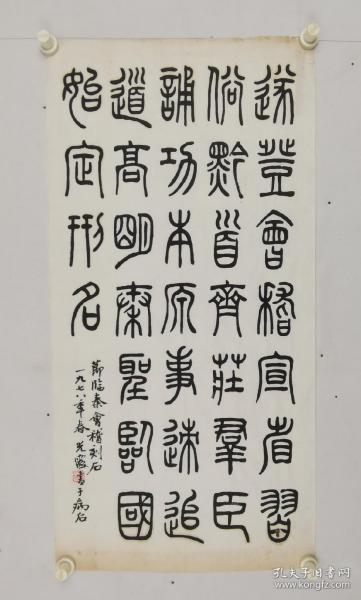 遂登會稽宣省習
俗黔首齊莊羣臣
誦功本原事迹追
道高明秦聖臨國
始定刑名
節臨秦會稽刻石
一九七八年春 光 書于病后
孔夫子旧书网